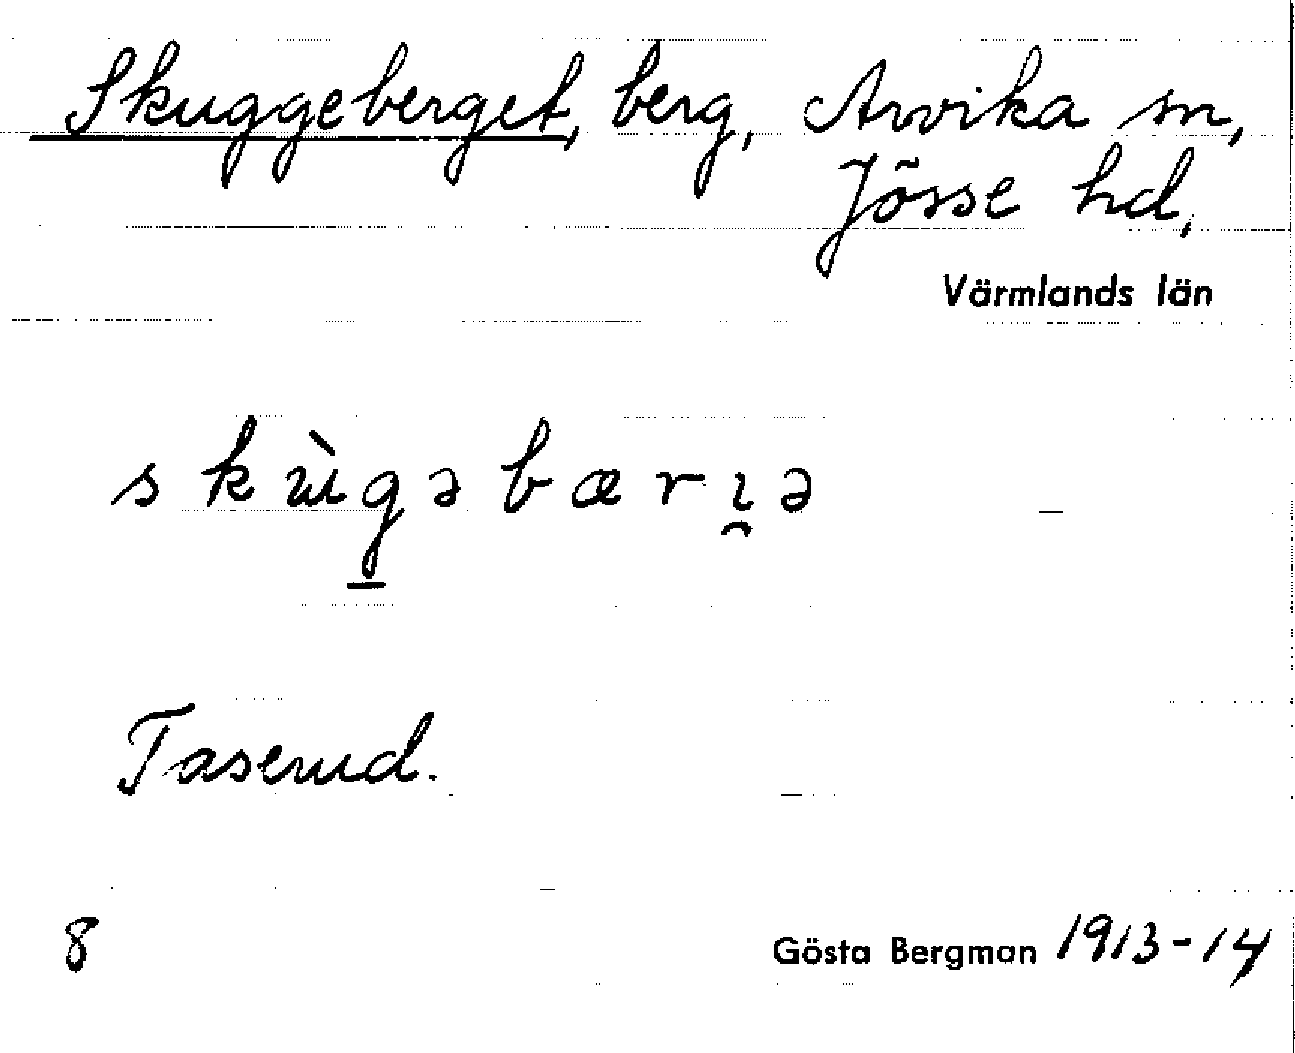 Skuggeberget, berg, Arvika sn,
Jösse hd,
Värmlands län
skɯ̀g̱əbærı̯ə
Taserud.
8
Gösta Bergman 1913-14